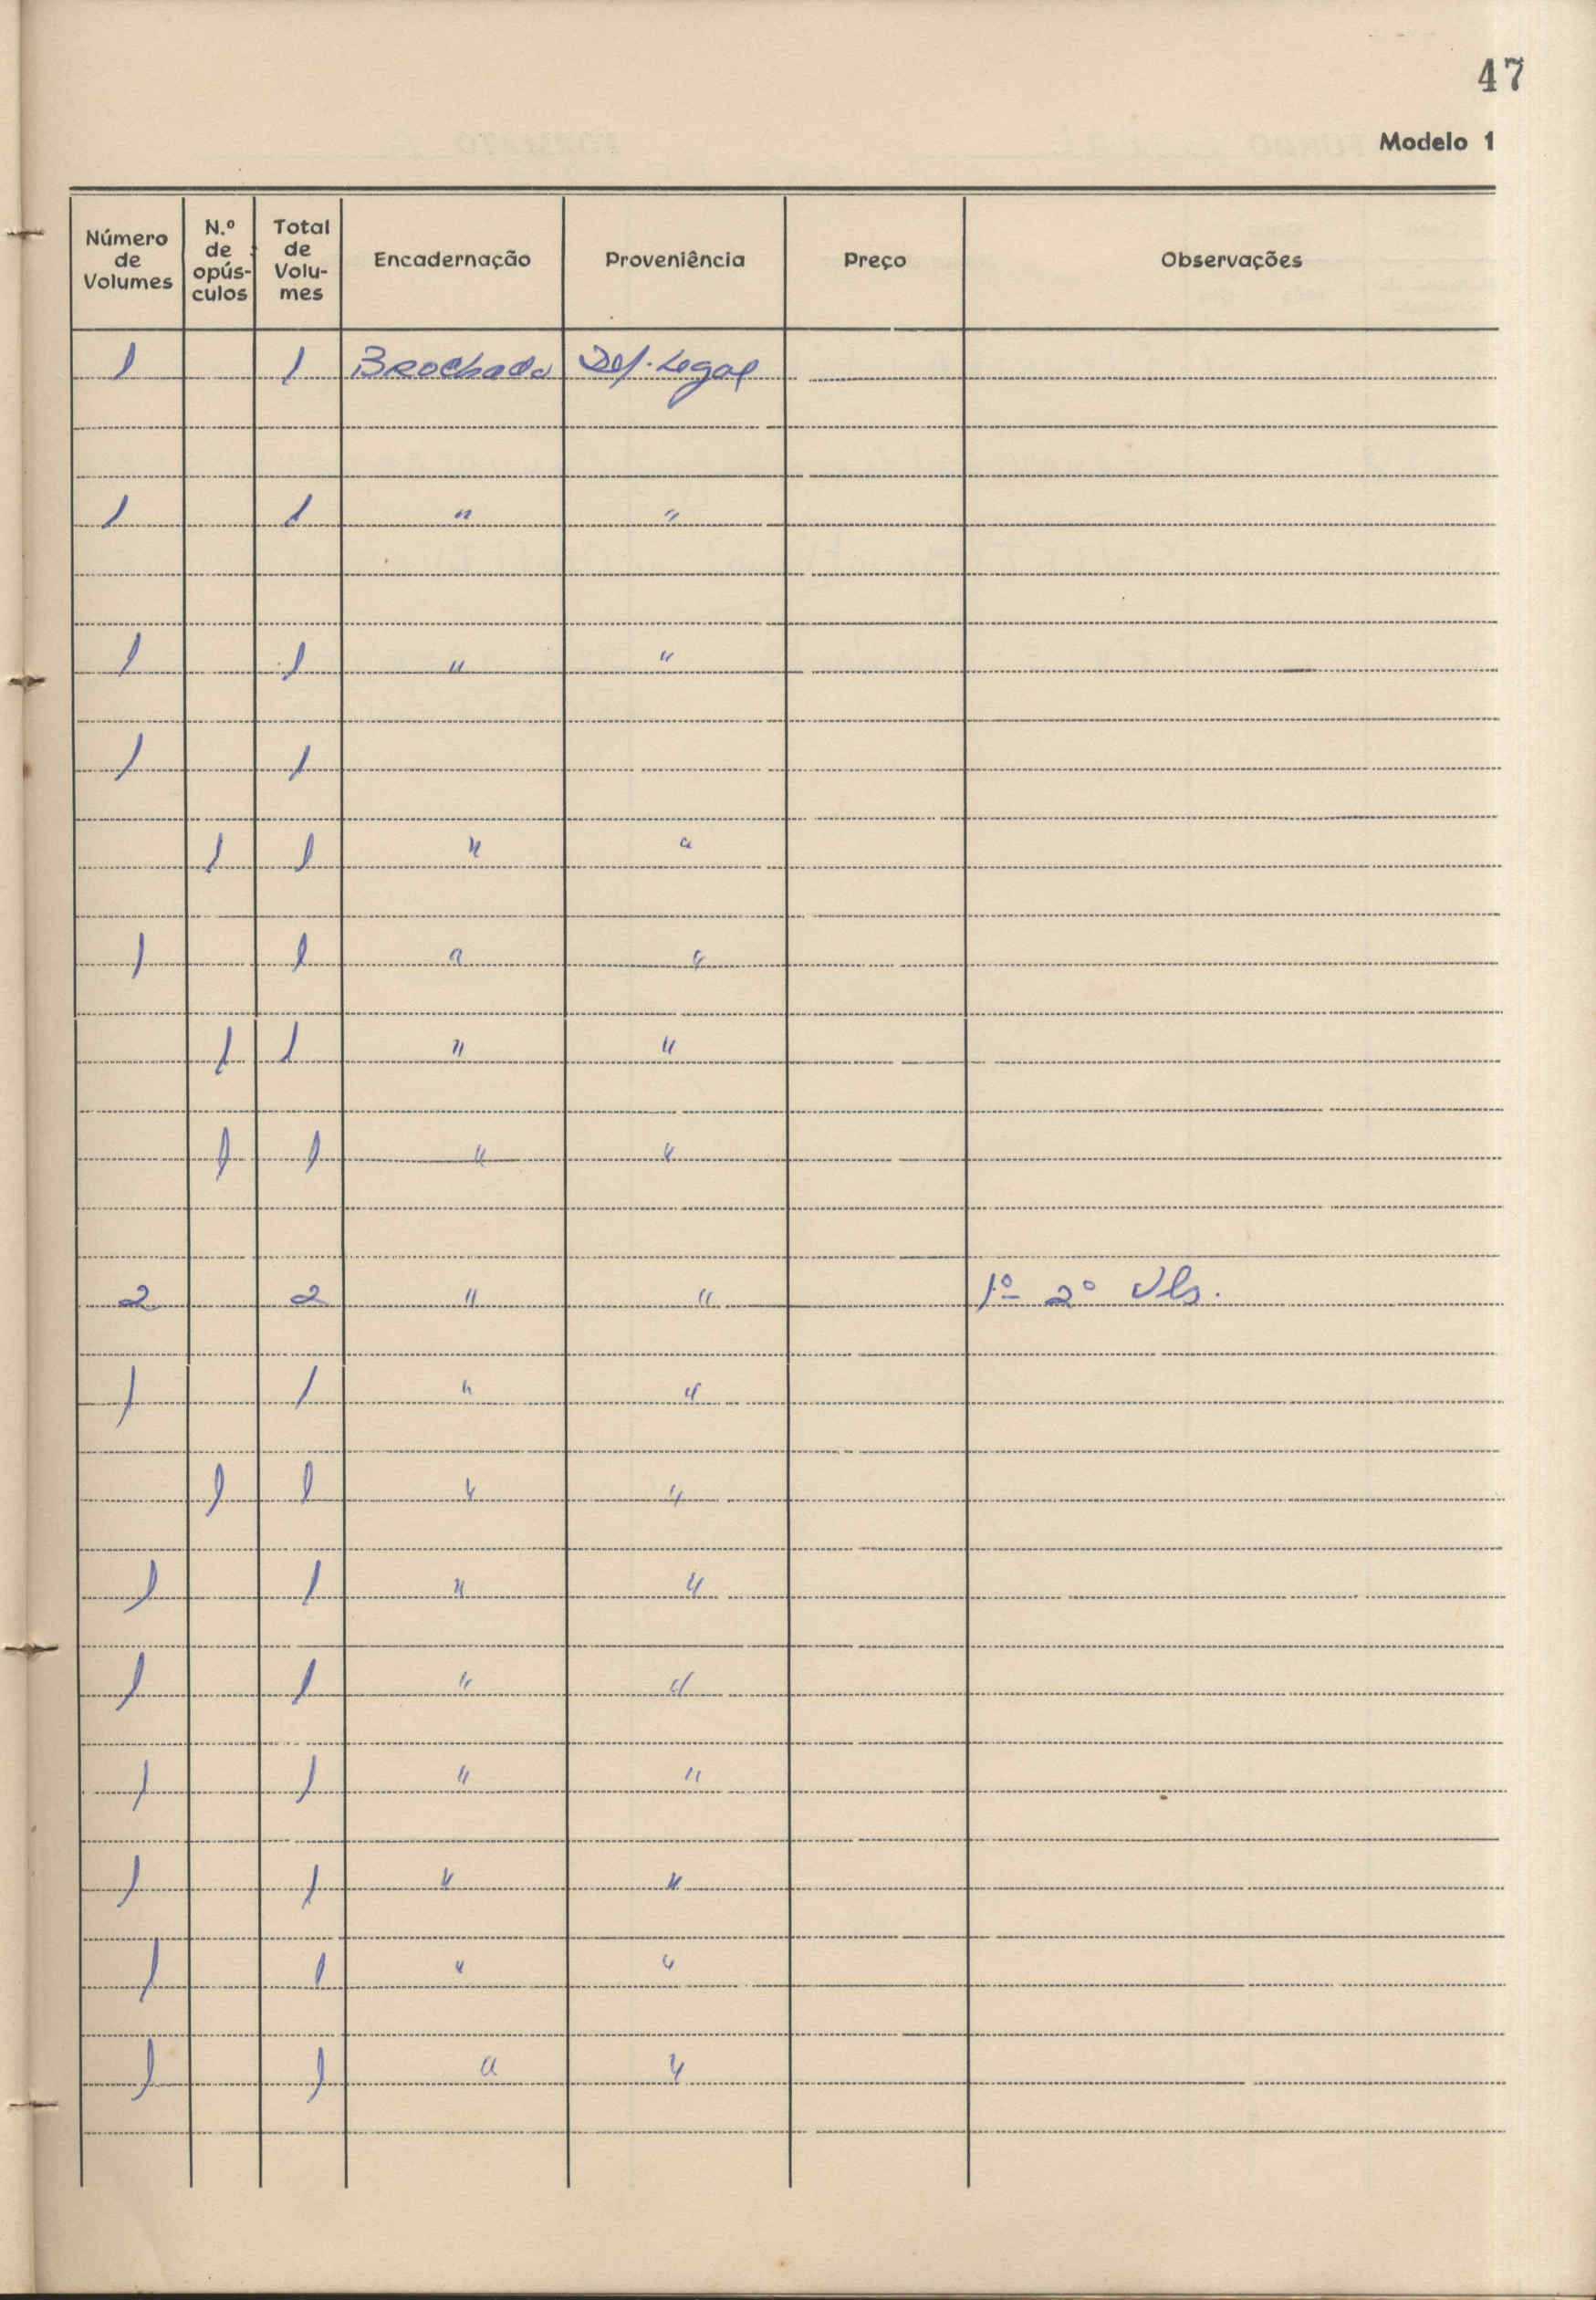 47
Modelo 1
Número de Volumes | N.º de opús-culos | Total de Volu-mes | Encadernação | Proveniência | Preço | Observações
1 | | 1 | Brochado | Dep. Legal | |
1 | | 1 | " | " | |
1 | | 1 | " | " | |
1 | | 1 | | | |
| 1 | 1 | " | " | |
1 | | 1 | " | " | |
| 1 | 1 | " | " | |
| 1 | 1 | " | " | |
2 | | 2 | " | " | | 1º 2º Vls.
1 | | 1 | " | " | |
| 1 | 1 | " | " | |
1 | | 1 | " | " | |
1 | | 1 | " | " | |
1 | | 1 | " | " | |
1 | | 1 | " | " | |
1 | | 1 | " | " | |
1 | | 1 | " | " | |